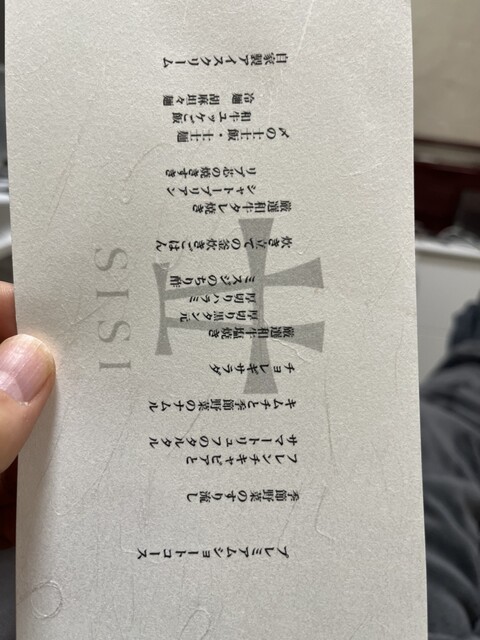 プレミアムショートコース
季節野菜のすり流し
フレンチキャビアと
サマートリュフのタルタル
キムチと季節野菜のナムル
チョレギサラダ
厳選和牛塩焼き
厚切り黒タン元
厚切りハラミ
ミスジのちり酢
炊き立ての釜炊きごはん
厳選和牛タレ焼き
シャトーブリアン
リブ芯の焼きすき
〆の士士飯・士士麺
和牛ユッケご飯
冷麺 胡麻坦々麺
自家製アイスクリーム
SISI